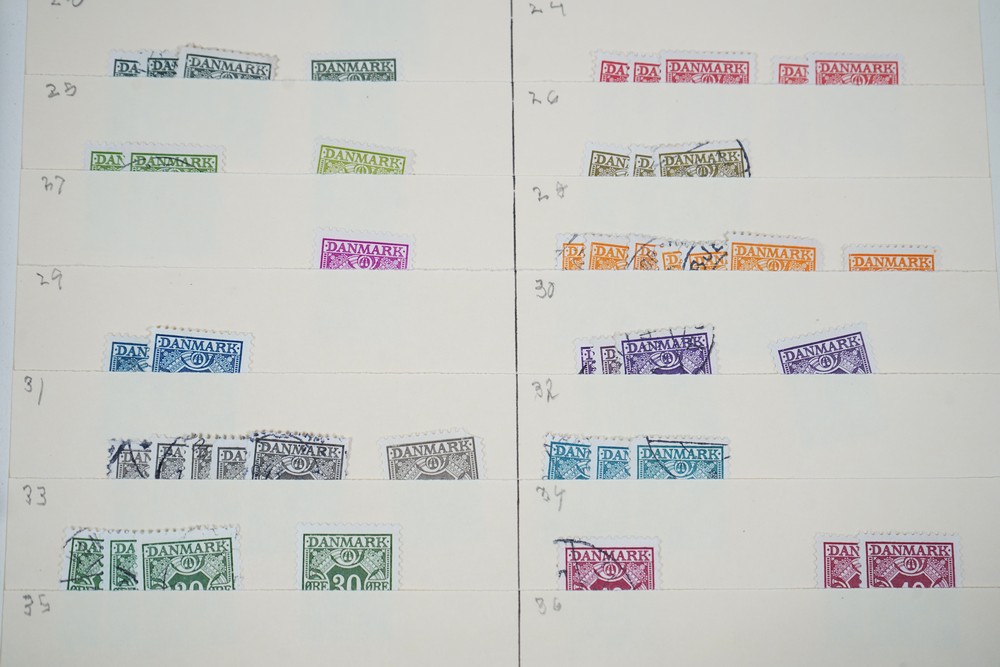 24
DAN DANMARK DANMARK
DA DA DANMARK DA DANMARK
25
26
DAN DANMARK DANMARK
DANM DA DANMARK
27
28
DANMARK
DA DANM DA DANMARK DANMARK
29
30
DAN DANMARK
D D DANMARK DANMARK
31
32
DAN DA DA DAN DANMARK DANMARK
DANM DAN DANMARK
33
34
DA DAN DANMARK DANMARK
30 ØRE 30 ØRE
DANMARK DAN DANMARK
35
36